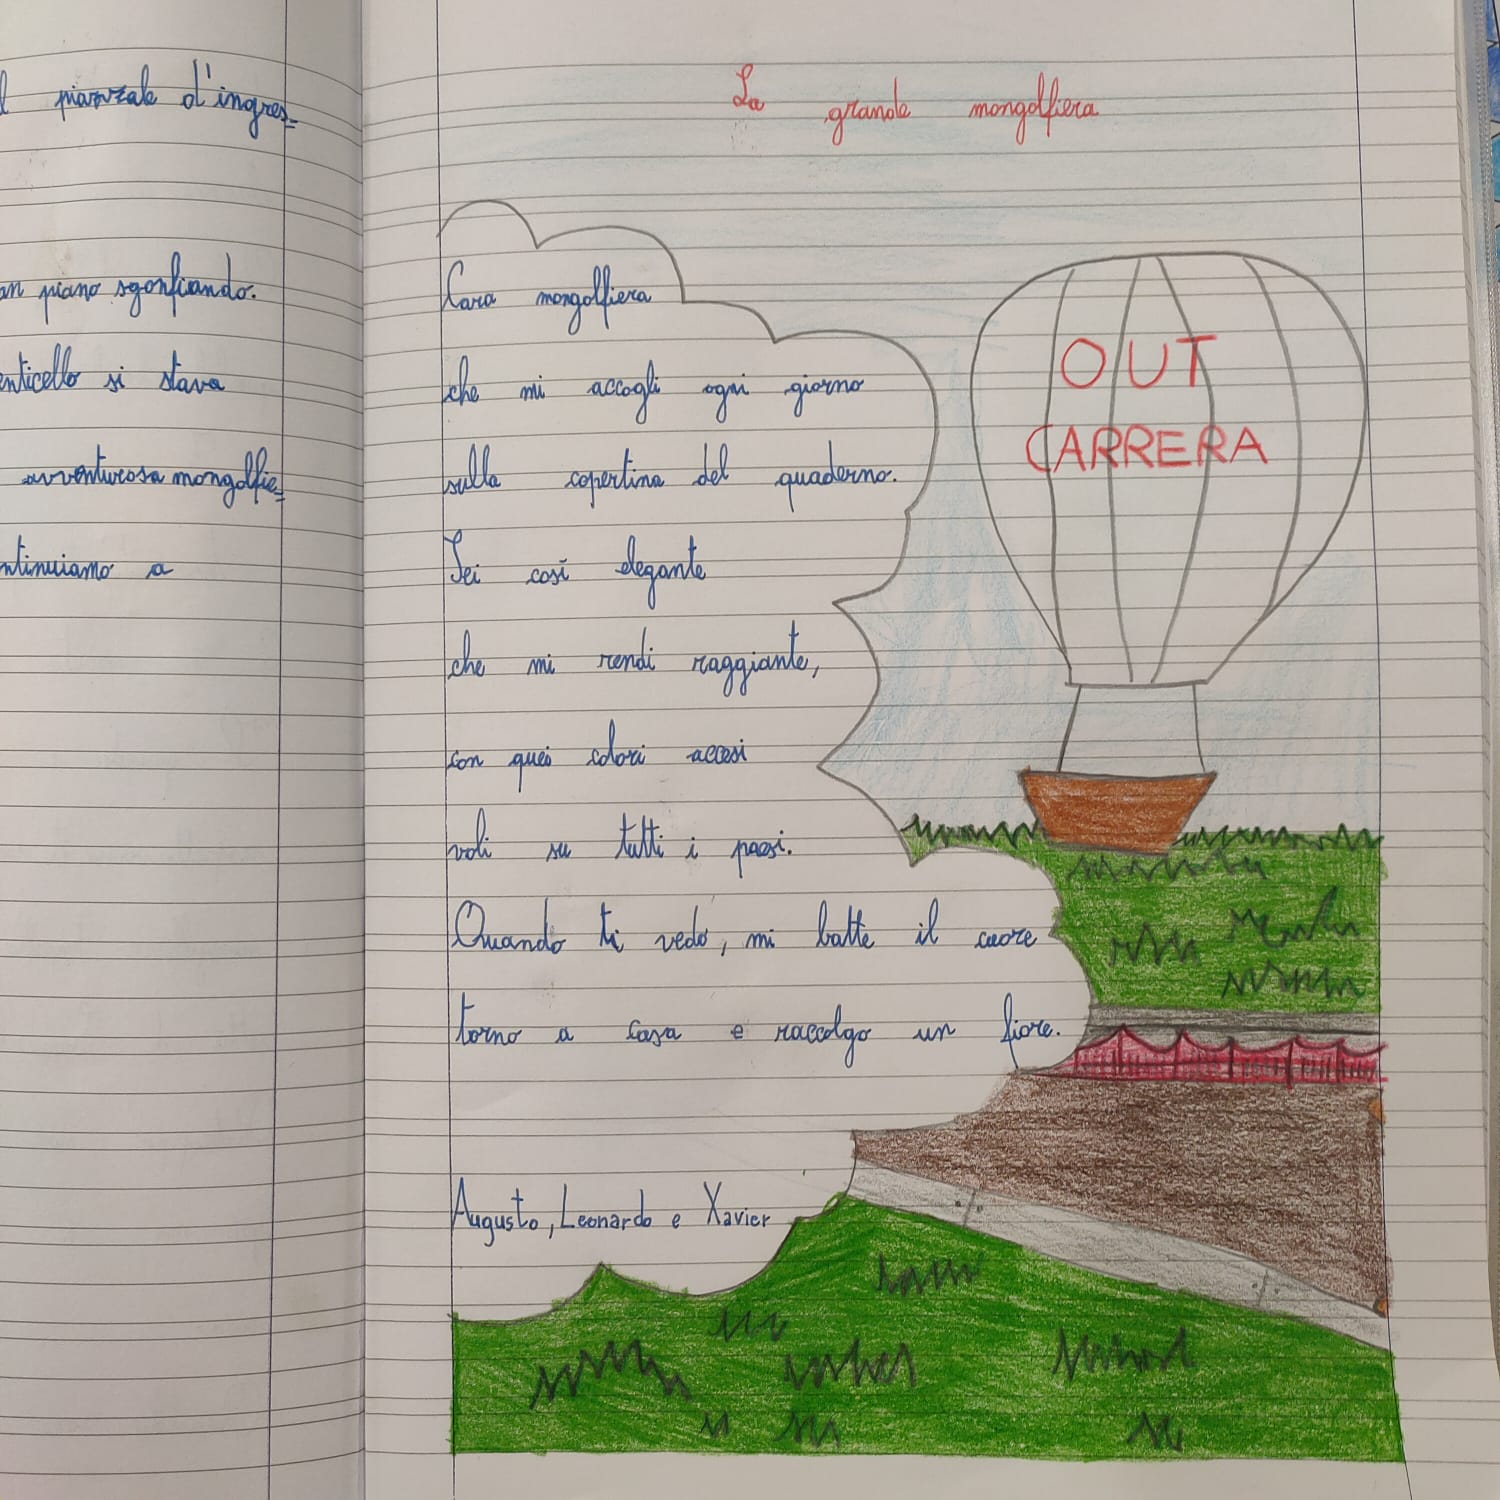 l piazzale d'ingres=
an piano sgonfiando.
enticello si stava
avventurosa mongolfie=
ntinuiamo a
La grande mongolfiera
Cara mongolfiera
che mi accogli ogni giorno
sulla copertina del quaderno.
Sei così elegante
che mi rendi raggiante,
con quei colori accesi
voli su tutti i paesi.
Quando ti vedo, mi batte il cuore
torno a casa e raccolgo un fiore.
Augusto, Leonardo e Xavier
OUT
CARRERA